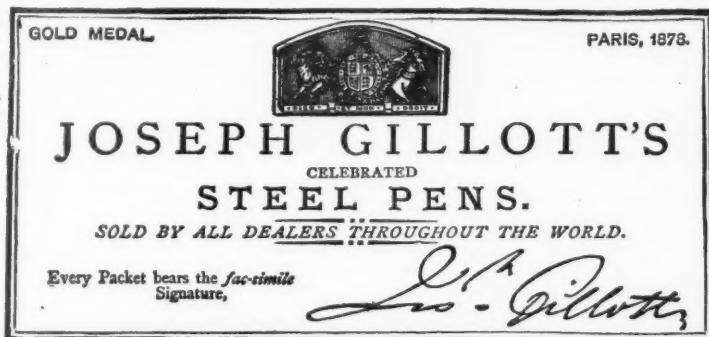 GOLD MEDAL.
PARIS, 1878.
DIEU ET MON DROIT
JOSEPH GILLOTT'S
CELEBRATED
STEEL PENS.
SOLD BY ALL DEALERS THROUGHOUT THE WORLD.
Every Packet bears the fac-simile
Signature,
Josh. Gillott